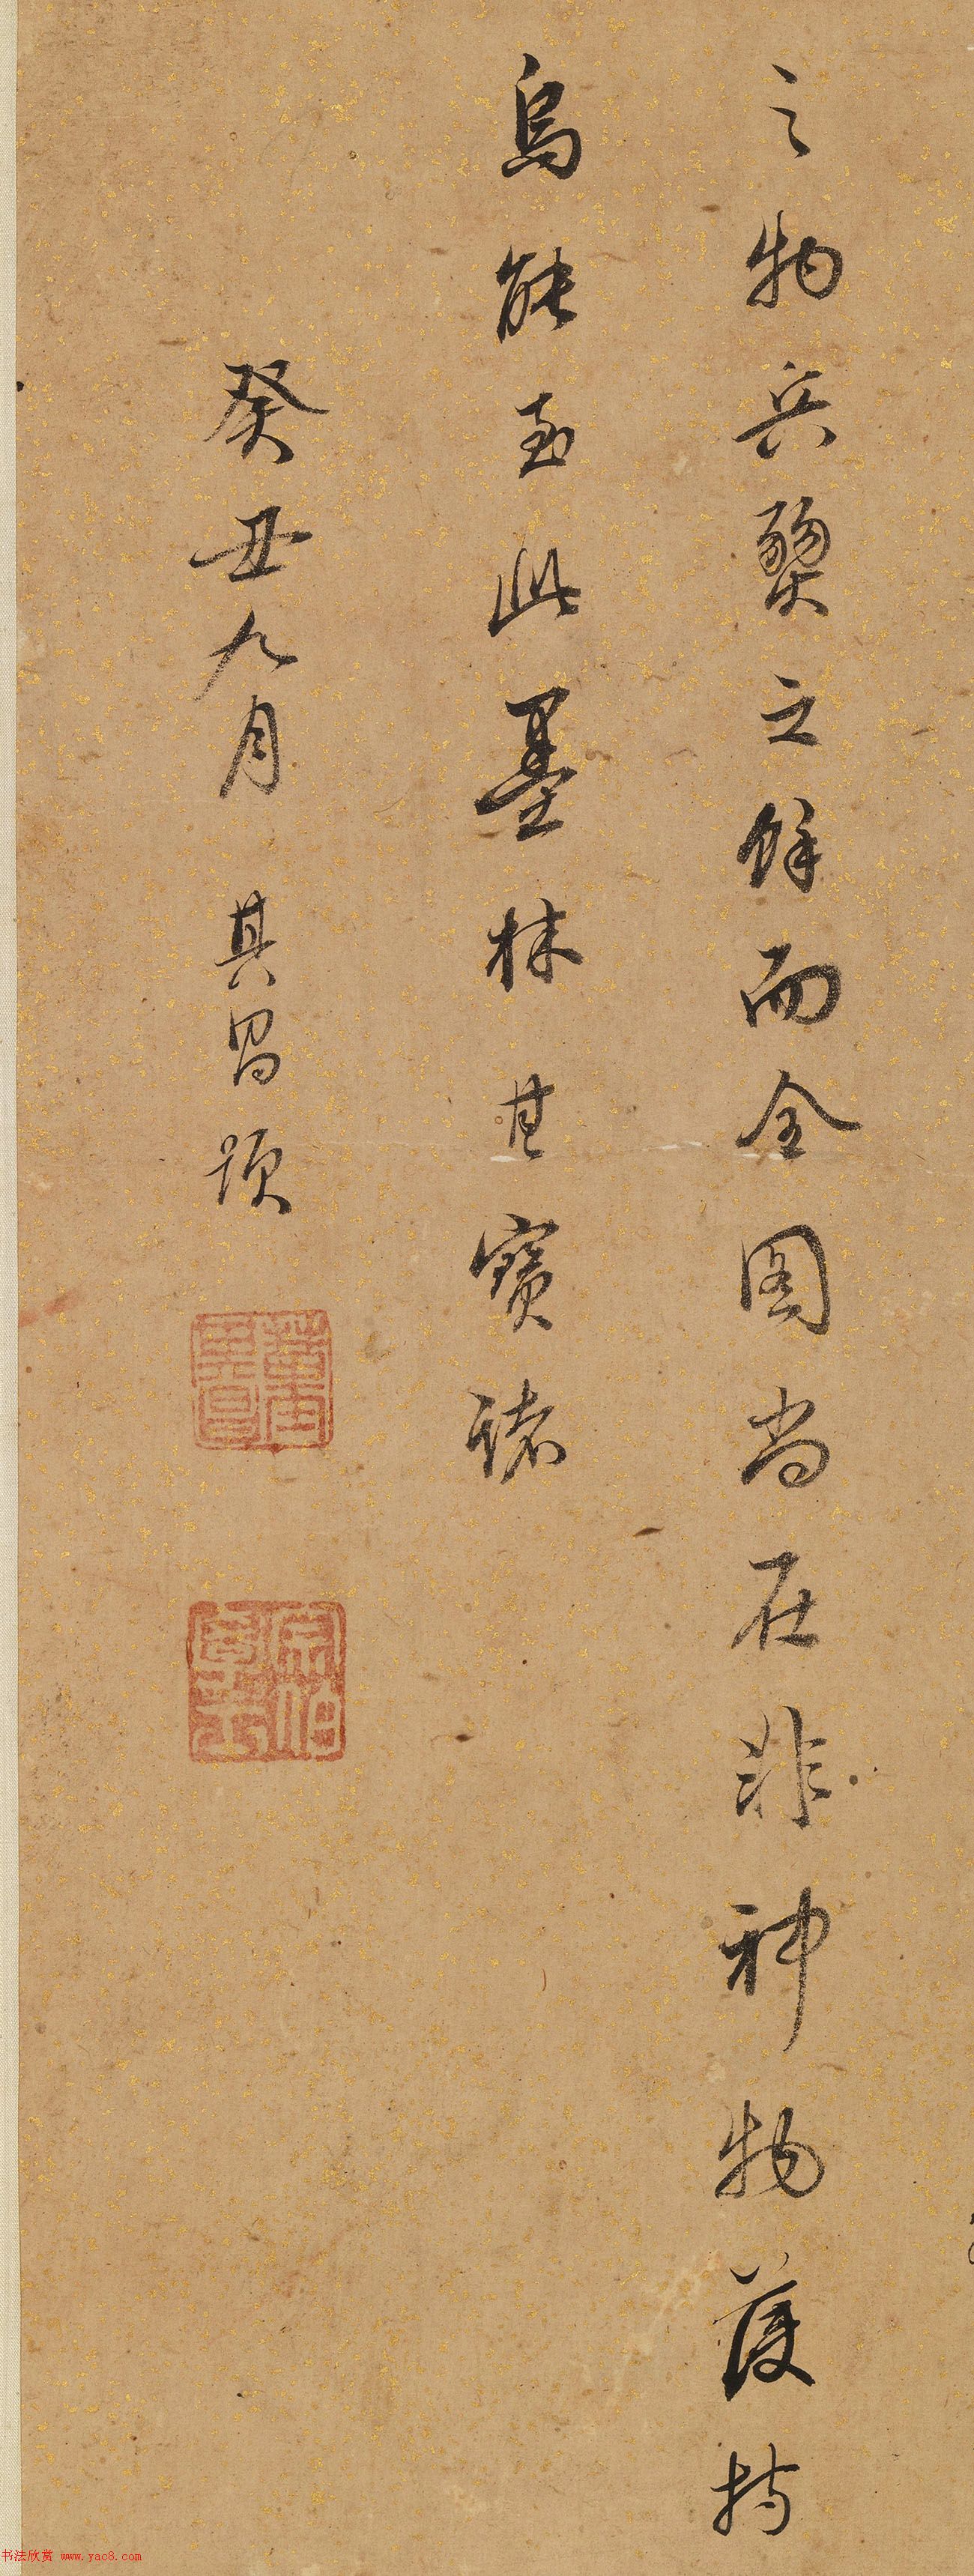 之物兵燹之餘而全圖尚在非神物護持
烏能至此墨林其寶諸
癸丑九月 其昌題
董其昌
宗伯學士
书法欣赏 www.yac8.com